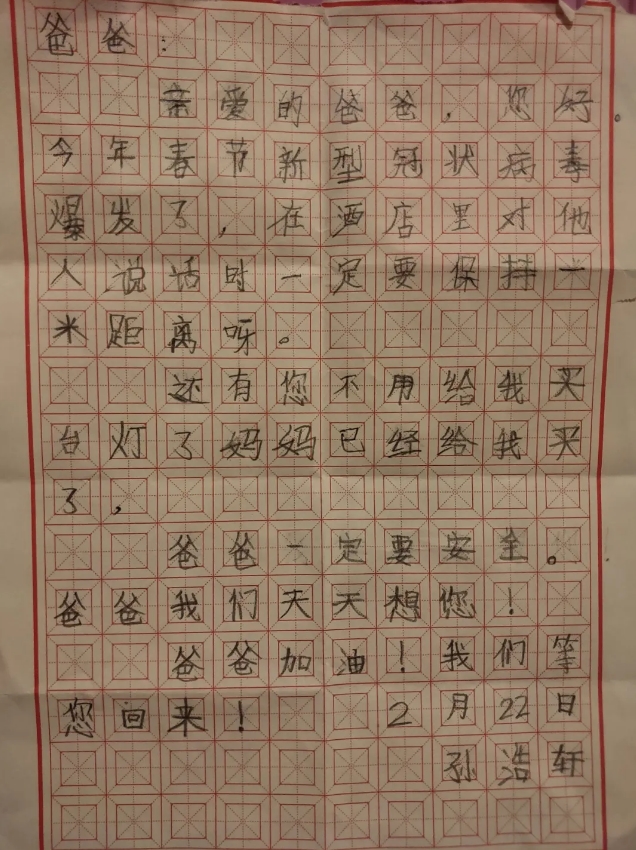 爸爸：
亲爱的爸爸，您好。
今年春节新型冠状病毒
爆发了，在酒店里对他
人说话时一定要保持一
米距离呀。
还有您不用给我买
台灯了妈妈已经给我买
了，
爸爸一定要安全。
爸爸我们天天想您！
爸爸加油！我们等
您回来！ 2月22日
孙浩轩